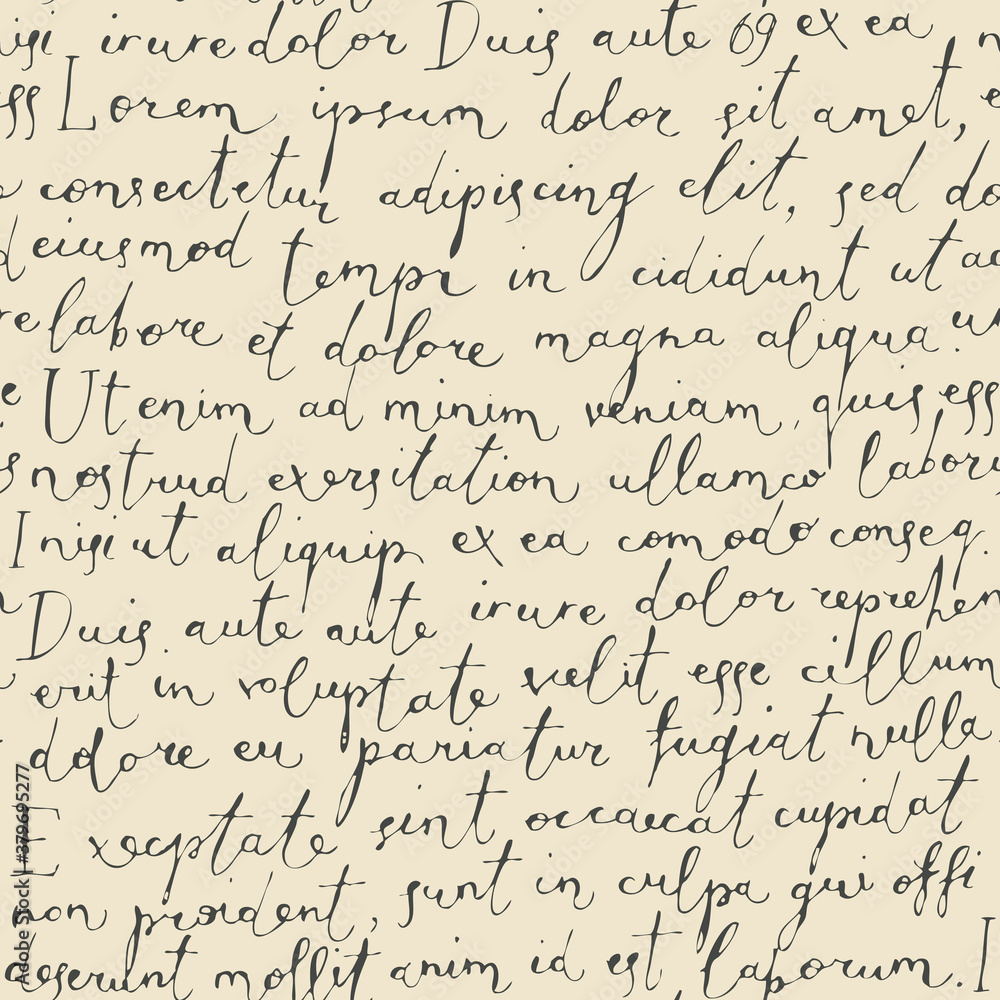 nisi irure dolor Duis aute 69 ex ea
Lorem ipsum dolor sit amet,
consectetur adipiscing elit, sed do
eiusmod tempr in cididunt ut ad
re labore et dolore magna aliqua.
Ut enim ad minim veniam, quis ess
nostrud exersitation ullamco labor
I nisi ut aliquip ex ea comodo conseq.
Duis. aute aute irure dolor reprehen
erit in voluptate velit esse cillum
dolore eu pariatur fugiat nulla
Execptate sint occaecat cupidat
non proident, sunt in culpa qui offi
deserunt mollit anim id est laborum. I
Adobe Stock | #379695277